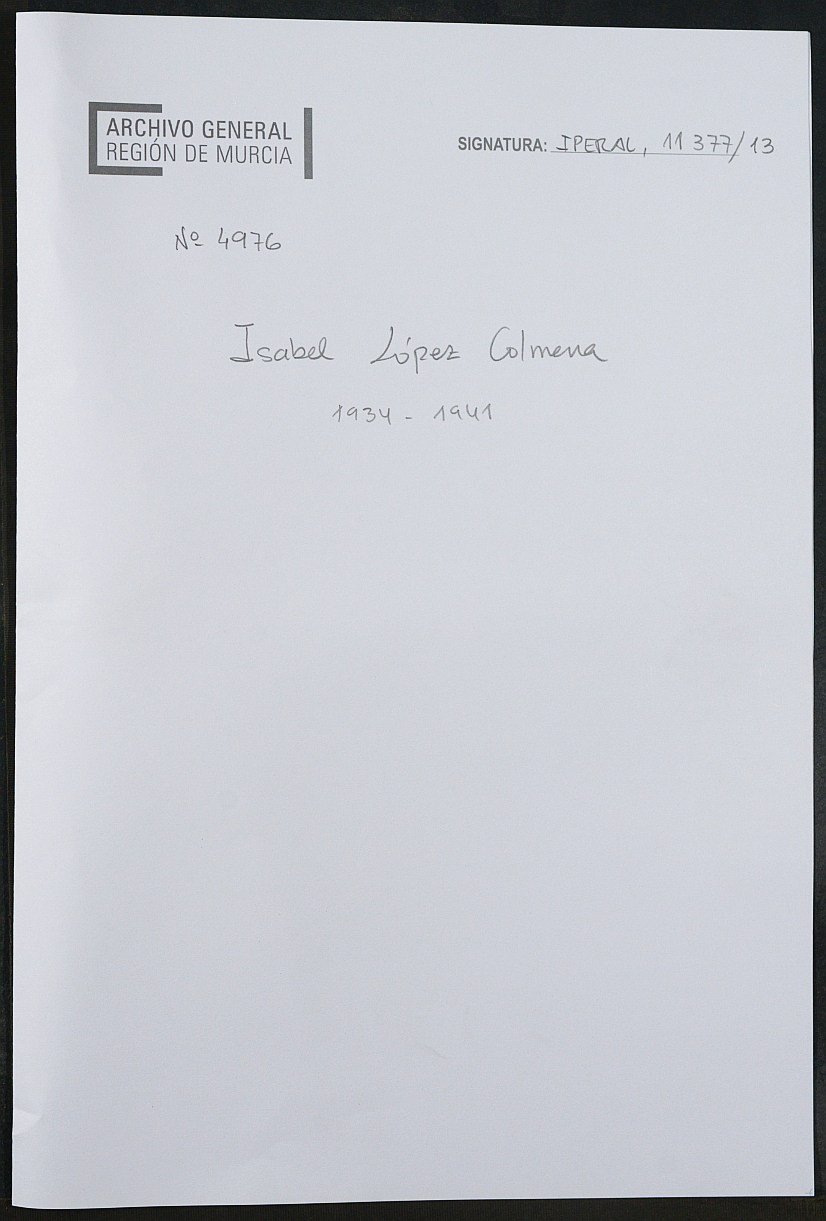 ARCHIVO GENERAL
REGIÓN DE MURCIA
SIGNATURA: IPERAL, 11377/13
Nº 4976
Isabel López Colmena
1934 - 1941